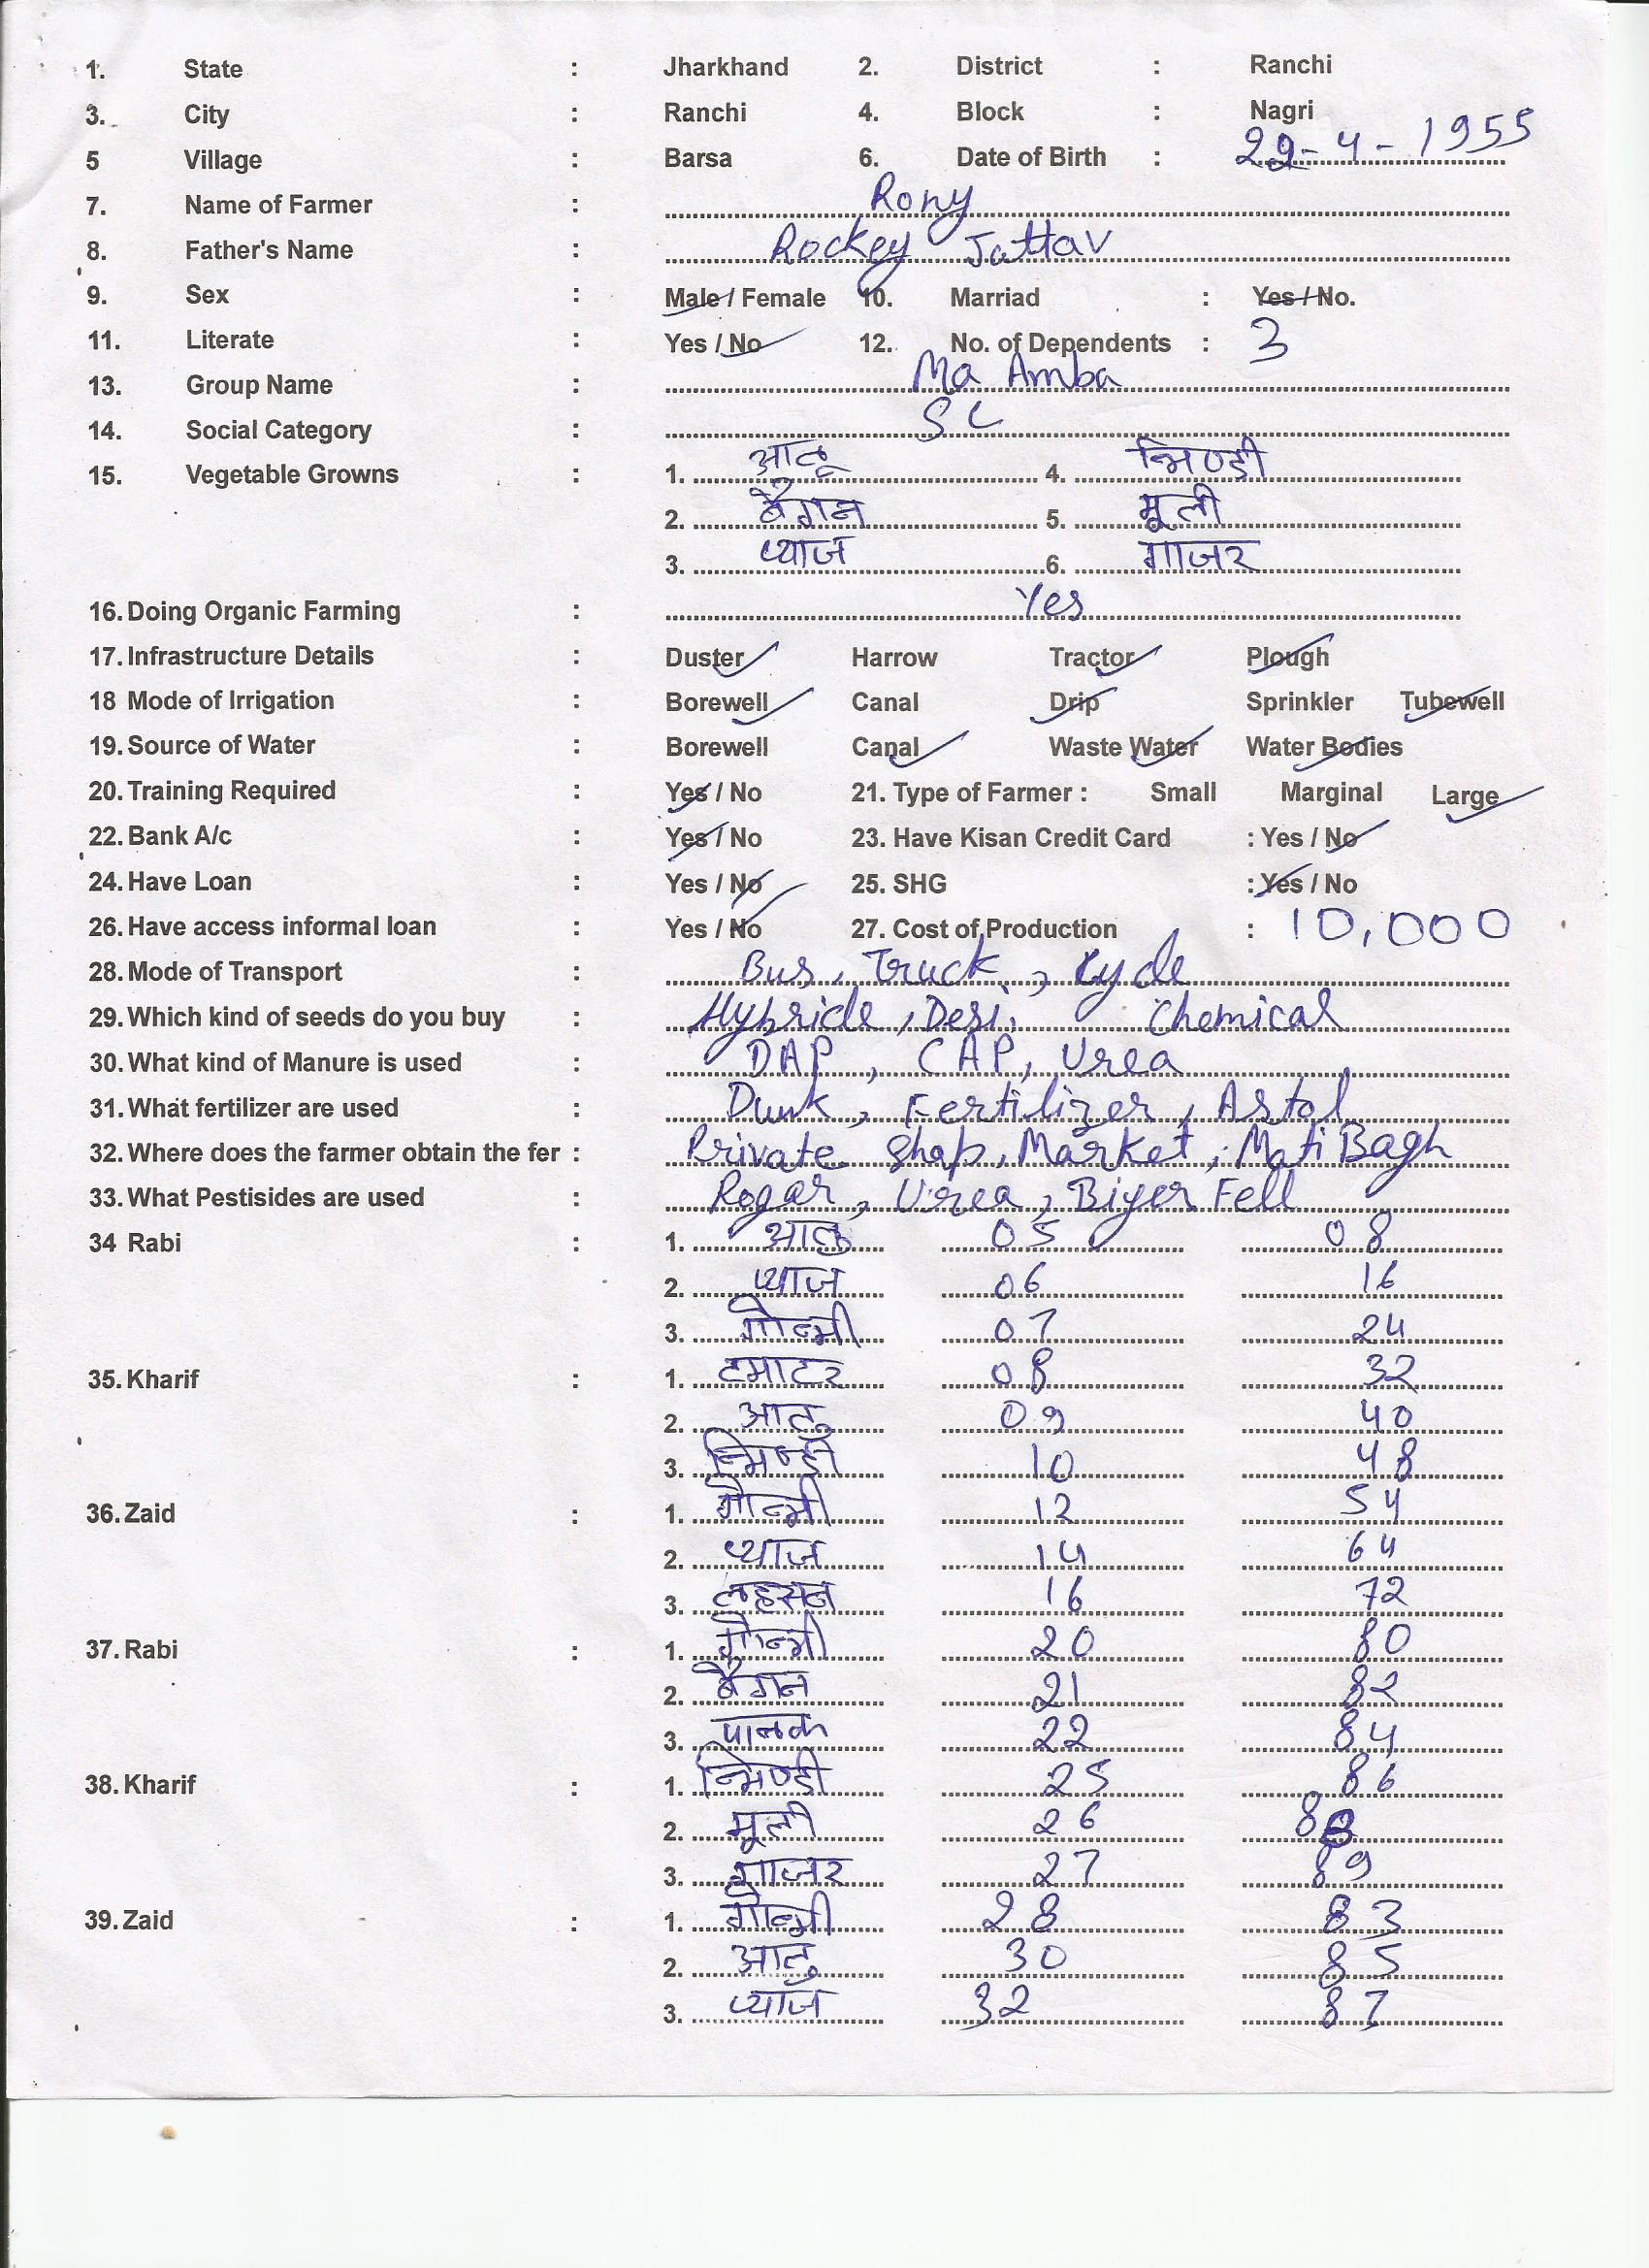 1. State : Jharkhand 2. District : Ranchi
3. City : Ranchi 4. Block : Nagri
5 Village : Barsa 6. Date of Birth : 22-4-1955
7. Name of Farmer : Rony
8. Father's Name : Rockey Jattav
9. Sex : Male / Female 10. Marriad : Yes / No.
11. Literate : Yes / No 12. No. of Dependents : 3
13. Group Name : Ma Amba
14. Social Category : SC
15. Vegetable Growns : 1. आलू 4. भिण्डी
2. बैंगन 5. मूली
3. प्याज 6. गाजर
16. Doing Organic Farming : Yes
17. Infrastructure Details : Duster Harrow Tractor Plough
18 Mode of Irrigation : Borewell Canal Drip Sprinkler Tubewell
19. Source of Water : Borewell Canal Waste Water Water Bodies
20. Training Required : Yes / No 21. Type of Farmer : Small Marginal Large
22. Bank A/c : Yes / No 23. Have Kisan Credit Card : Yes / No
24. Have Loan : Yes / No 25. SHG : Yes / No
26. Have access informal loan : Yes / No 27. Cost of Production : 10,000
28. Mode of Transport : Bus, Truck, Cycle
29. Which kind of seeds do you buy : Hybride, Desi, Chemical
30. What kind of Manure is used : DAP, CAP, Urea
31. What fertilizer are used : Dunk, Fertilizer, Astol
32. Where does the farmer obtain the fer : Private Shop, Market, Moti Bagh
33. What Pestisides are used : Rogar, Urea, Biyer Fell
34 Rabi : 1. आलु 05 08
2. प्याज 06 16
3. गोभी 07 24
35. Kharif : 1. टमाटर 08 32
2. आलु 09 40
3. भिण्डी 10 48
36. Zaid : 1. गोभी 12 54
2. प्याज 14 64
3. लहसन 16 72
37. Rabi : 1. गोभी 20 80
2. बैंगन 21 82
3. पालक 22 84
38. Kharif : 1. भिण्डी 25 86
2. मूली 26 88
3. गाजर 27 89
39. Zaid : 1. गोभी 28 83
2. आलु 30 85
3. प्याज 32 87